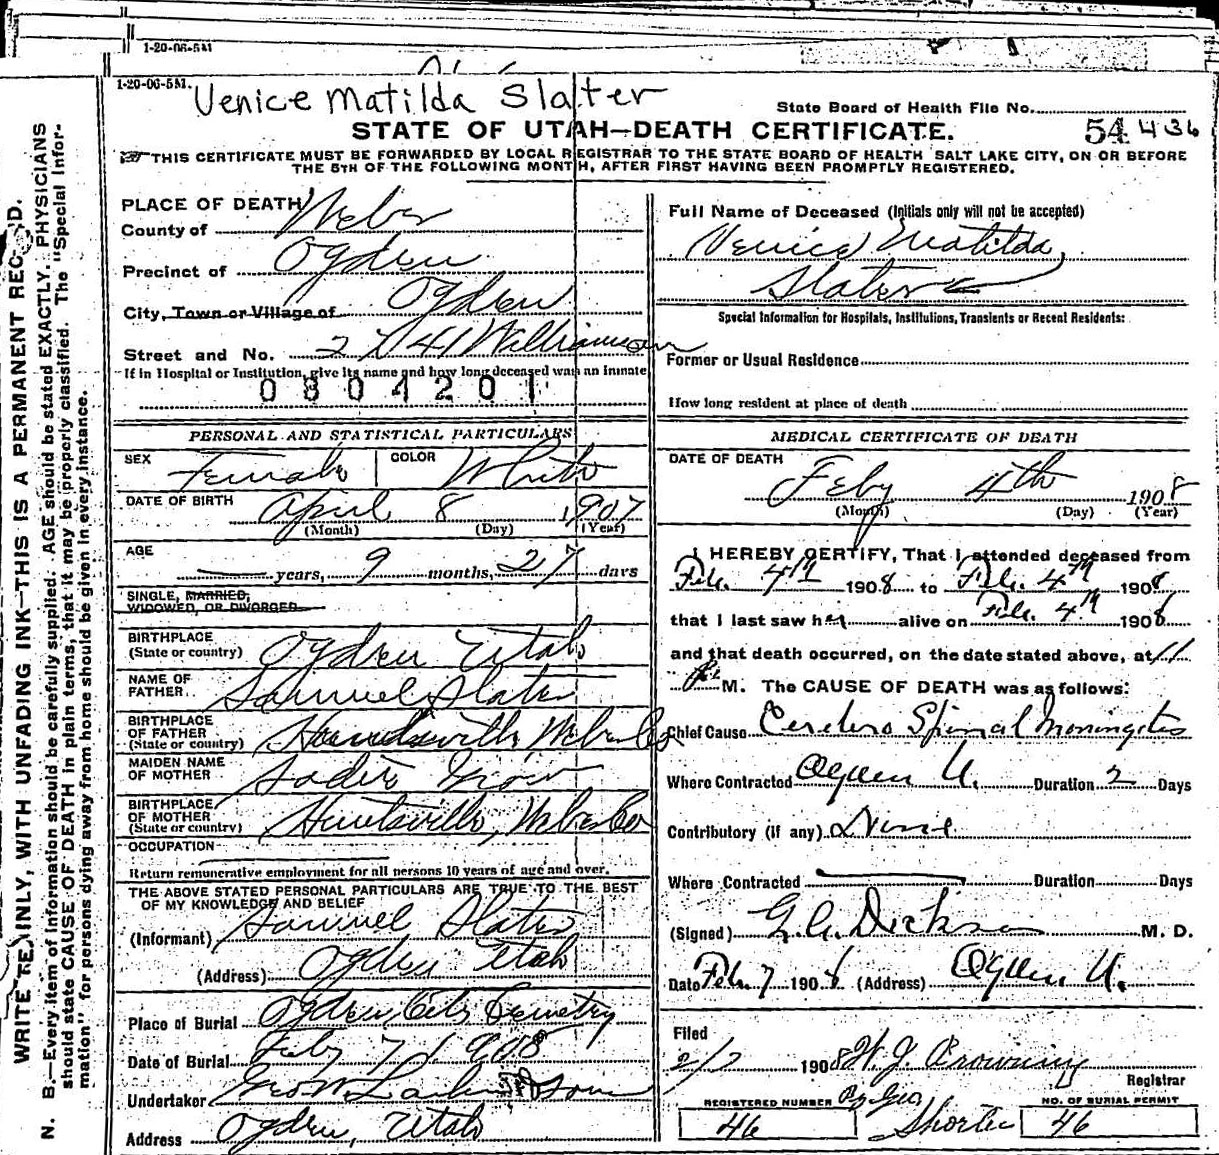 1-20-06-5M
1-20-06-5M.
Venice Matilda Slater
State Board of Health File No.
STATE OF UTAH—DEATH CERTIFICATE.
54 436
THIS CERTIFICATE MUST BE FORWARDED BY LOCAL REGISTRAR TO THE STATE BOARD OF HEALTH SALT LAKE CITY, ON OR BEFORE
THE 5TH OF THE FOLLOWING MONTH, AFTER FIRST HAVING BEEN PROMPTLY REGISTERED.
WRITE PLAINLY, WITH UNFADING INK—THIS IS A PERMANENT RECORD.
N. B.—Every item of information should be carefully supplied. AGE should be stated EXACTLY. PHYSICIANS
should state CAUSE OF DEATH in plain terms, that it may be properly classified. The "Special Infor-
mation" for persons dying away from home should be given in every instance.
PLACE OF DEATH
County of Weber
Precinct of Ogden
City, Town or Village of Ogden
Street and No. 2741 Williamson
If in Hospital or Institution, give its name and how long deceased was an inmate
0804201
PERSONAL AND STATISTICAL PARTICULARS
SEX Female COLOR White
DATE OF BIRTH April 8 1907
(Month) (Day) (Year)
AGE
years, 9 months, 27 days
SINGLE, MARRIED,
WIDOWED, OR DIVORCED
BIRTHPLACE
(State or country) Ogden Utah
NAME OF
FATHER Samuel Slater
BIRTHPLACE
OF FATHER
(State or country) Huntsville, Weber Co
MAIDEN NAME
OF MOTHER
BIRTHPLACE
OF MOTHER
(State or country) Huntsville, Weber Co
OCCUPATION
Return remunerative employment for all persons 10 years of age and over.
THE ABOVE STATED PERSONAL PARTICULARS ARE TRUE TO THE BEST
OF MY KNOWLEDGE AND BELIEF
(Informant) Samuel Slater
(Address) Ogden Utah
Place of Burial Ogden City Cemetry
Date of Burial Feby 7 1908
Undertaker Geo W. Larkin & Sons
Address Ogden, Utah
Full Name of Deceased (Initials only will not be accepted)
Venice Matilda
Slater
Special Information for Hospitals, Institutions, Transients or Recent Residents:
Former or Usual Residence
How long resident at place of death
MEDICAL CERTIFICATE OF DEATH
DATE OF DEATH
Feby 4th 1908
(Month) (Day) (Year)
I HEREBY CERTIFY, That I attended deceased from
Feb. 4th 1908 to Feb. 4th 1908
that I last saw her alive on Feb. 4th 1908
and that death occurred, on the date stated above, at 11
P. M. The CAUSE OF DEATH was as follows:
Chief Cause Cerebro Spinal Meningitis
Where Contracted Ogden U. Duration 2 Days
Contributory (if any) None
Where Contracted Duration Days
(Signed) G. A. Dickson M. D.
Date Feb. 7 1908 (Address) Ogden U.
Filed
2/7 1908 W. J. Browning
Registrar
REGISTERED NUMBER
46
By Geo
Shorten
NO. OF BURIAL PERMIT
46